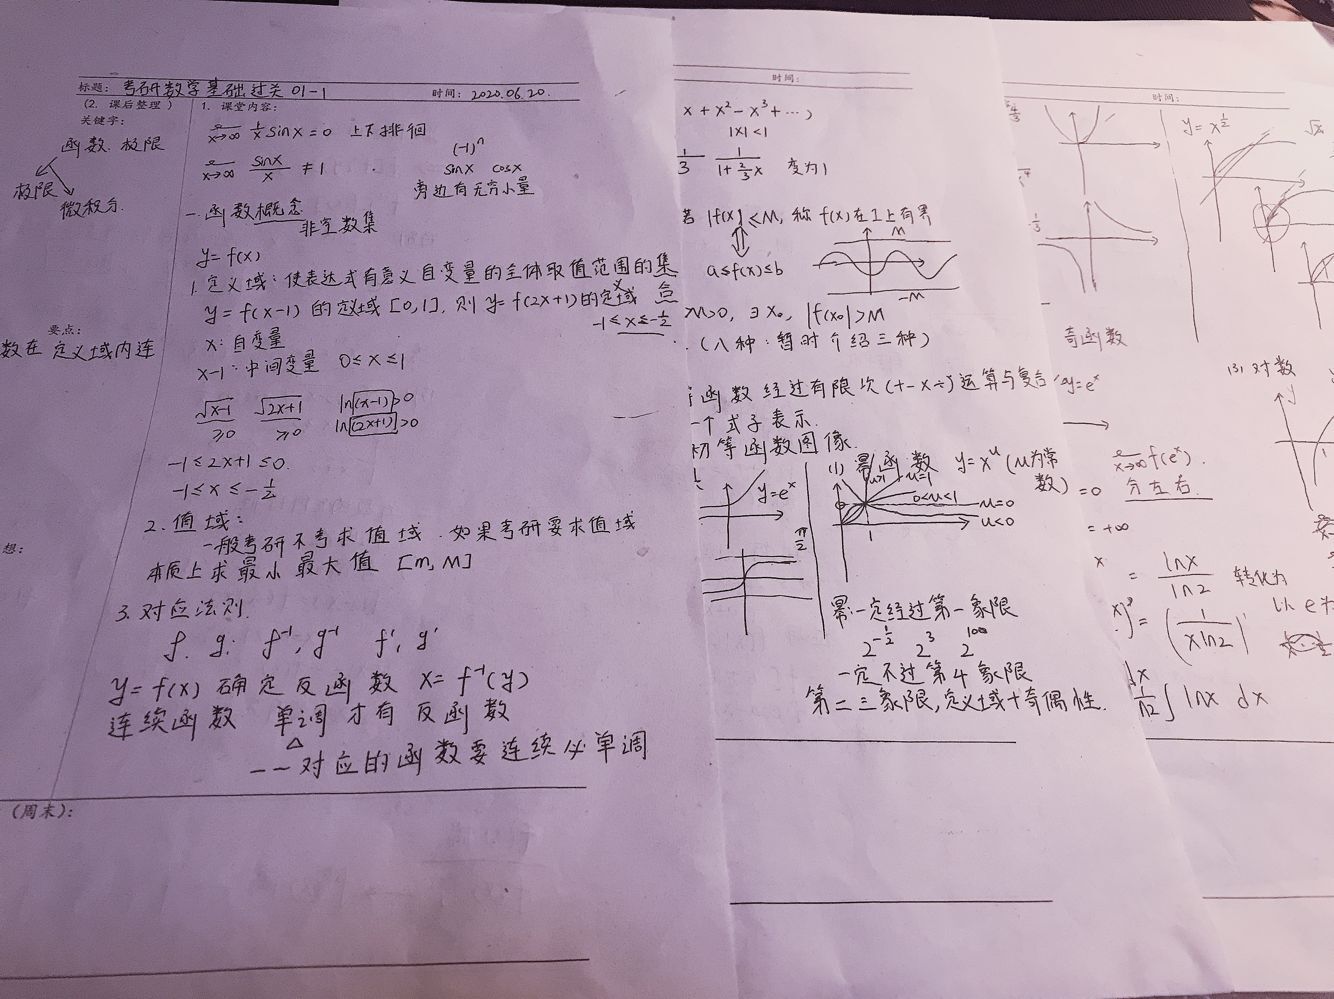 标题: 考研数学基础过关 01-1
时间: 2020.06.20.
(2. 课后整理)
关键字:
函数. 极限
极限
微积分.
要点:
数在 定义域内连
想:
(周末):
1. 课堂内容:
x→∞ 1/x sinx = 0 上下徘徊
x→∞ sinx/x ≠ 1
(-1)ⁿ
sinx cosx
旁边有无穷小量
一. 函数概念
非空数集
y = f(x)
1. 定义域: 使表达式有意义自变量的全体取值范围的集合
y = f(x-1) 的定义域 [0,1], 则 y = f(2x+1)的定义域
-1 ≤ x ≤ -1/2
x: 自变量
x-1: 中间变量 0 ≤ x ≤ 1
√x-1 √2x+1 ln(x-1)>0
≥0 ≥0 ln(2x+1)>0
-1 ≤ 2x+1 ≤ 0.
-1 ≤ x ≤ -1/2
2. 值域:
一般考研不考求值域. 如果考研要求值域
本质上求最小最大值 [m, M]
3. 对应法则.
f. g. f⁻¹, g⁻¹ f', g'
y = f(x) 确定反函数 x = f⁻¹(y)
连续函数 单调才有反函数
一一对应的函数要连续必单调
时间:
x + x² - x³ + ⋯)
|x| < 1
1/3 1/(1+2/3x) 变为1
若 |f(x)| ≤ M, 称 f(x)在I上有界
M
a ≤ f(x) ≤ b
-M
M>0, ∃ x₀, |f(x₀)| > M
(八种: 暂时介绍三种)
函数经过有限次(+-×÷)运算与复合
一个式子表示.
初等函数图像.
y=eˣ
π/2
(1) 幂函数 y = xᵘ (u为常数)
u>1 u=1
0<u<1
u=0
u<0
1
幂: 一定经过第一象限
2^(-1/2) 2³ 2¹⁰⁰
一定不过第4象限
第二三象限, 定义域+奇偶性.
时间:
y = x^(1/2)
奇函数
(3) 对数
y
y=eˣ
x→∞ f(eˣ).
=0 分左右.
= +∞
= lnx/ln2 转化为
以e为
(1/(xln2))'
∫ lnx dx